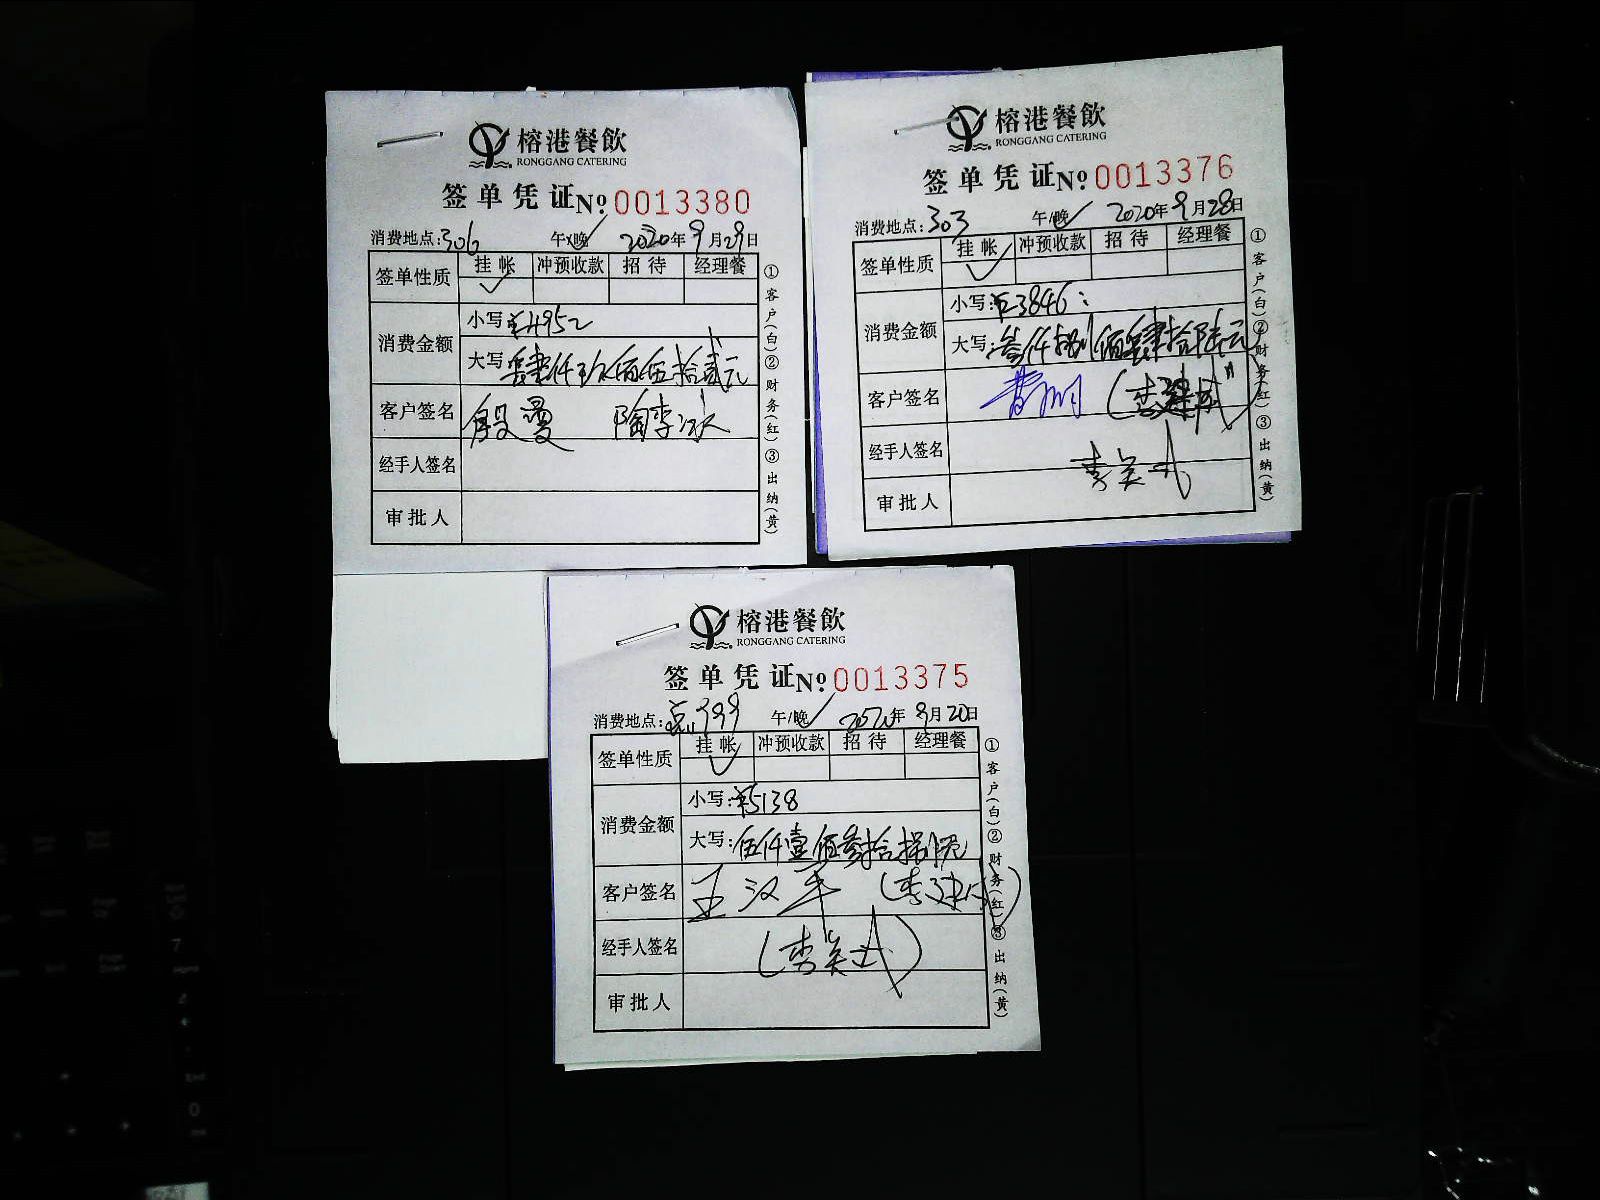 榕港餐飲
RONGGANG CATERING
签单凭证 № 0013380
消费地点:306 午/晚 2020年9月29日
签单性质 挂帐 冲预收款 招待 经理餐
消费金额 小写:¥4952
大写:肆仟玖佰伍拾贰元
客户签名 殷漫 陶李冰
经手人签名
审批人
①客户(白)②财务(红)③出纳(黄)
榕港餐飲
RONGGANG CATERING
签单凭证 № 0013376
消费地点:303 午/晚 2020年9月28日
签单性质 挂帐 冲预收款 招待 经理餐
消费金额 小写:¥3846
大写:叁仟捌佰肆拾陆元
客户签名 (李建成)
经手人签名
审批人
①客户(白)②财务(红)③出纳(黄)
榕港餐飲
RONGGANG CATERING
签单凭证 № 0013375
消费地点: 999 午/晚 2020年9月20日
签单性质 挂帐 冲预收款 招待 经理餐
消费金额 小写:¥5138
大写:伍仟壹佰叁拾捌元
客户签名 王汉军 (李建成)
经手人签名
审批人
①客户(白)②财务(红)③出纳(黄)